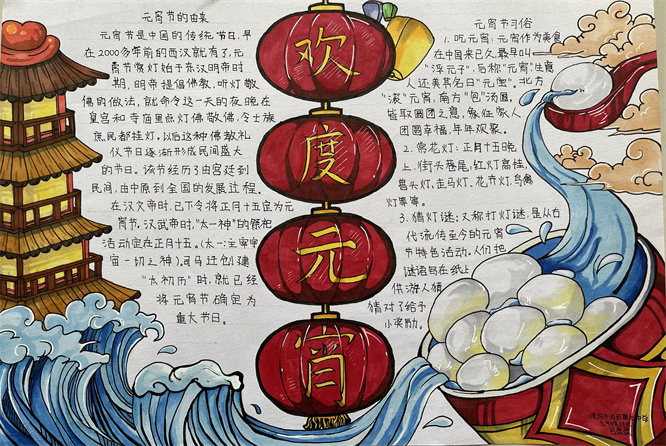 元宵节的由来
元宵节是中国的传统节日,早
在2000多年前的西汉就有了,元
宵节赏灯始于东汉明帝时
期,明帝提倡佛教,听灯敬
佛的做法,就命令这一天的夜晚在
皇宫和寺庙里点灯敬佛,令士族
庶民都挂灯。以后这种佛教礼
仪节日逐渐形成民间盛大
的节日。该节经历了由宫廷到
民间,由中原到全国的发展过程。
在汉文帝时,已下令将正月十五定为元
宵节。汉武帝时,"太一神"的祭祀
活动定在正月十五。(太一:主宰宇
宙一切之神)。司马迁创建
"太初历"时,就已经
将元宵节确定为
重大节日。
欢
度
元
宵
元宵节习俗
1.吃元宵:元宵作为美食
在中国来已久最早叫
"浮元子",后称"元宵",生意
人还美其名曰"元宝"。北方
"滚"元宵,南方"包"汤圆,
皆取团圆之意,象征家人
团圆幸福,年年观聚。
2.赏花灯:正月十五晚
上,街头巷尾,红灯高挂,
兽头灯、走马灯、花卉灯、鸟禽
灯等等。
3.猜灯谜:又称打灯谜,是从古
代流传至今的元宵
节特色活动。人们把
谜语写在纸上
供游人猜
猜对了给予
小奖励。